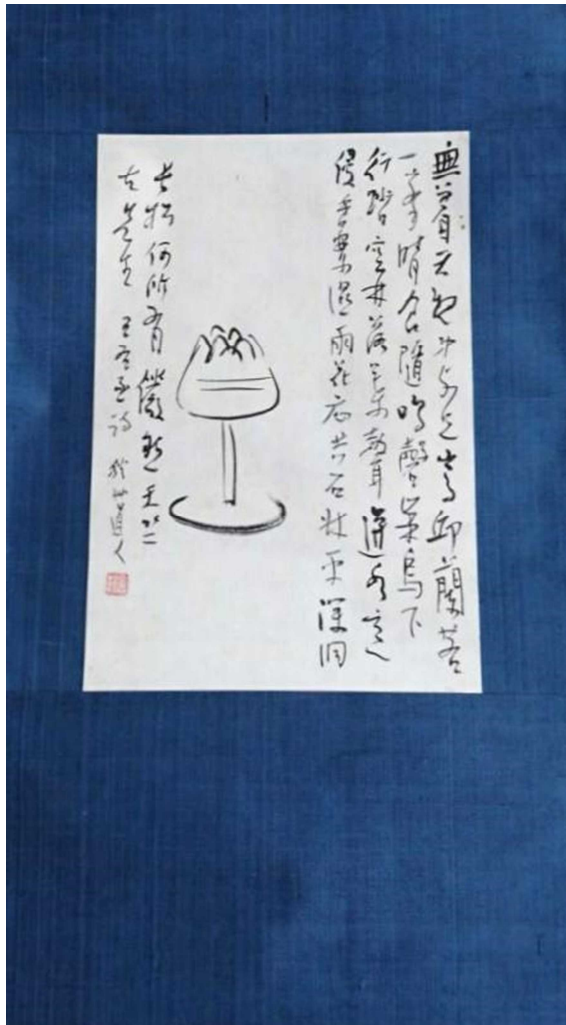 無着天親弟与兄嵩邱蘭若
一峯晴食隨鳴磬巢烏下
行踏空林落葉聲迸水定
侵香案濕雨花应共石牀平深洞
長松何所有儼然天竺
古先生 王右丞詩 道人